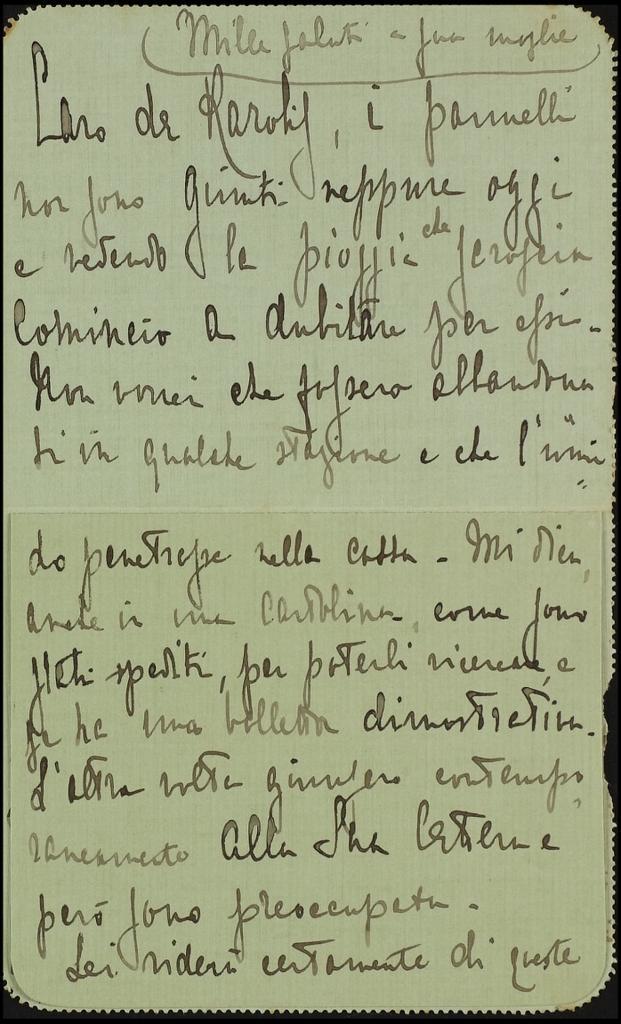 (Mille saluti a sua moglie)
Caro de Karolis, i pannelli
non sono giunti neppure oggi
e vedendo la pioggia che scroscia
comincio a dubitare per essi -
Non vorrei che fossero abbandona
ti in qualche stazione e che l'umi
=
do penetrasse nella cassa - Mi dica,
anche in una cartolina, come sono
stati spediti, per poterli ricercare, e
se ha una bolletta dimostrativa.
L'altra volta giunsero contempo
raneamente alla Sua lettera e
però sono preoccupata -
Lei riderà certamente di queste